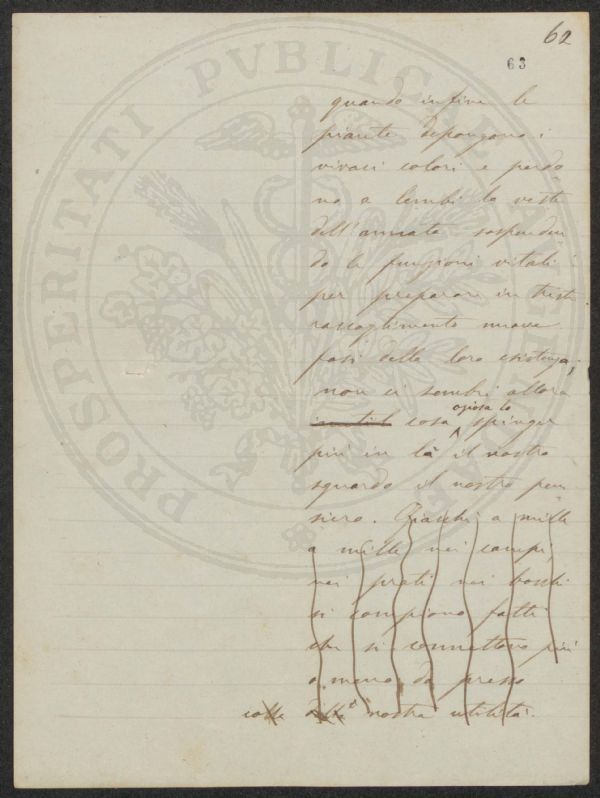 62
63
quando infine le
piante depongono i
vivaci colori e perdo
no a lembi la veste
dell'annata sospenden
do le funzioni vitali
per preparare in triste
raccoglimento nuove
fasi della loro esistenza;
non ci sembri allora
inutile cosa oziosa lo spinger
più in là il nostro
sguardo il nostro pen
siero. Giacchè a mille
a mille nei campi,
nei prati nei boschi
si compiono fatti
che si connettono più
o meno da presso
colla nostra utilità.
PROSPERITATI PVBLICAE AVGENDAE